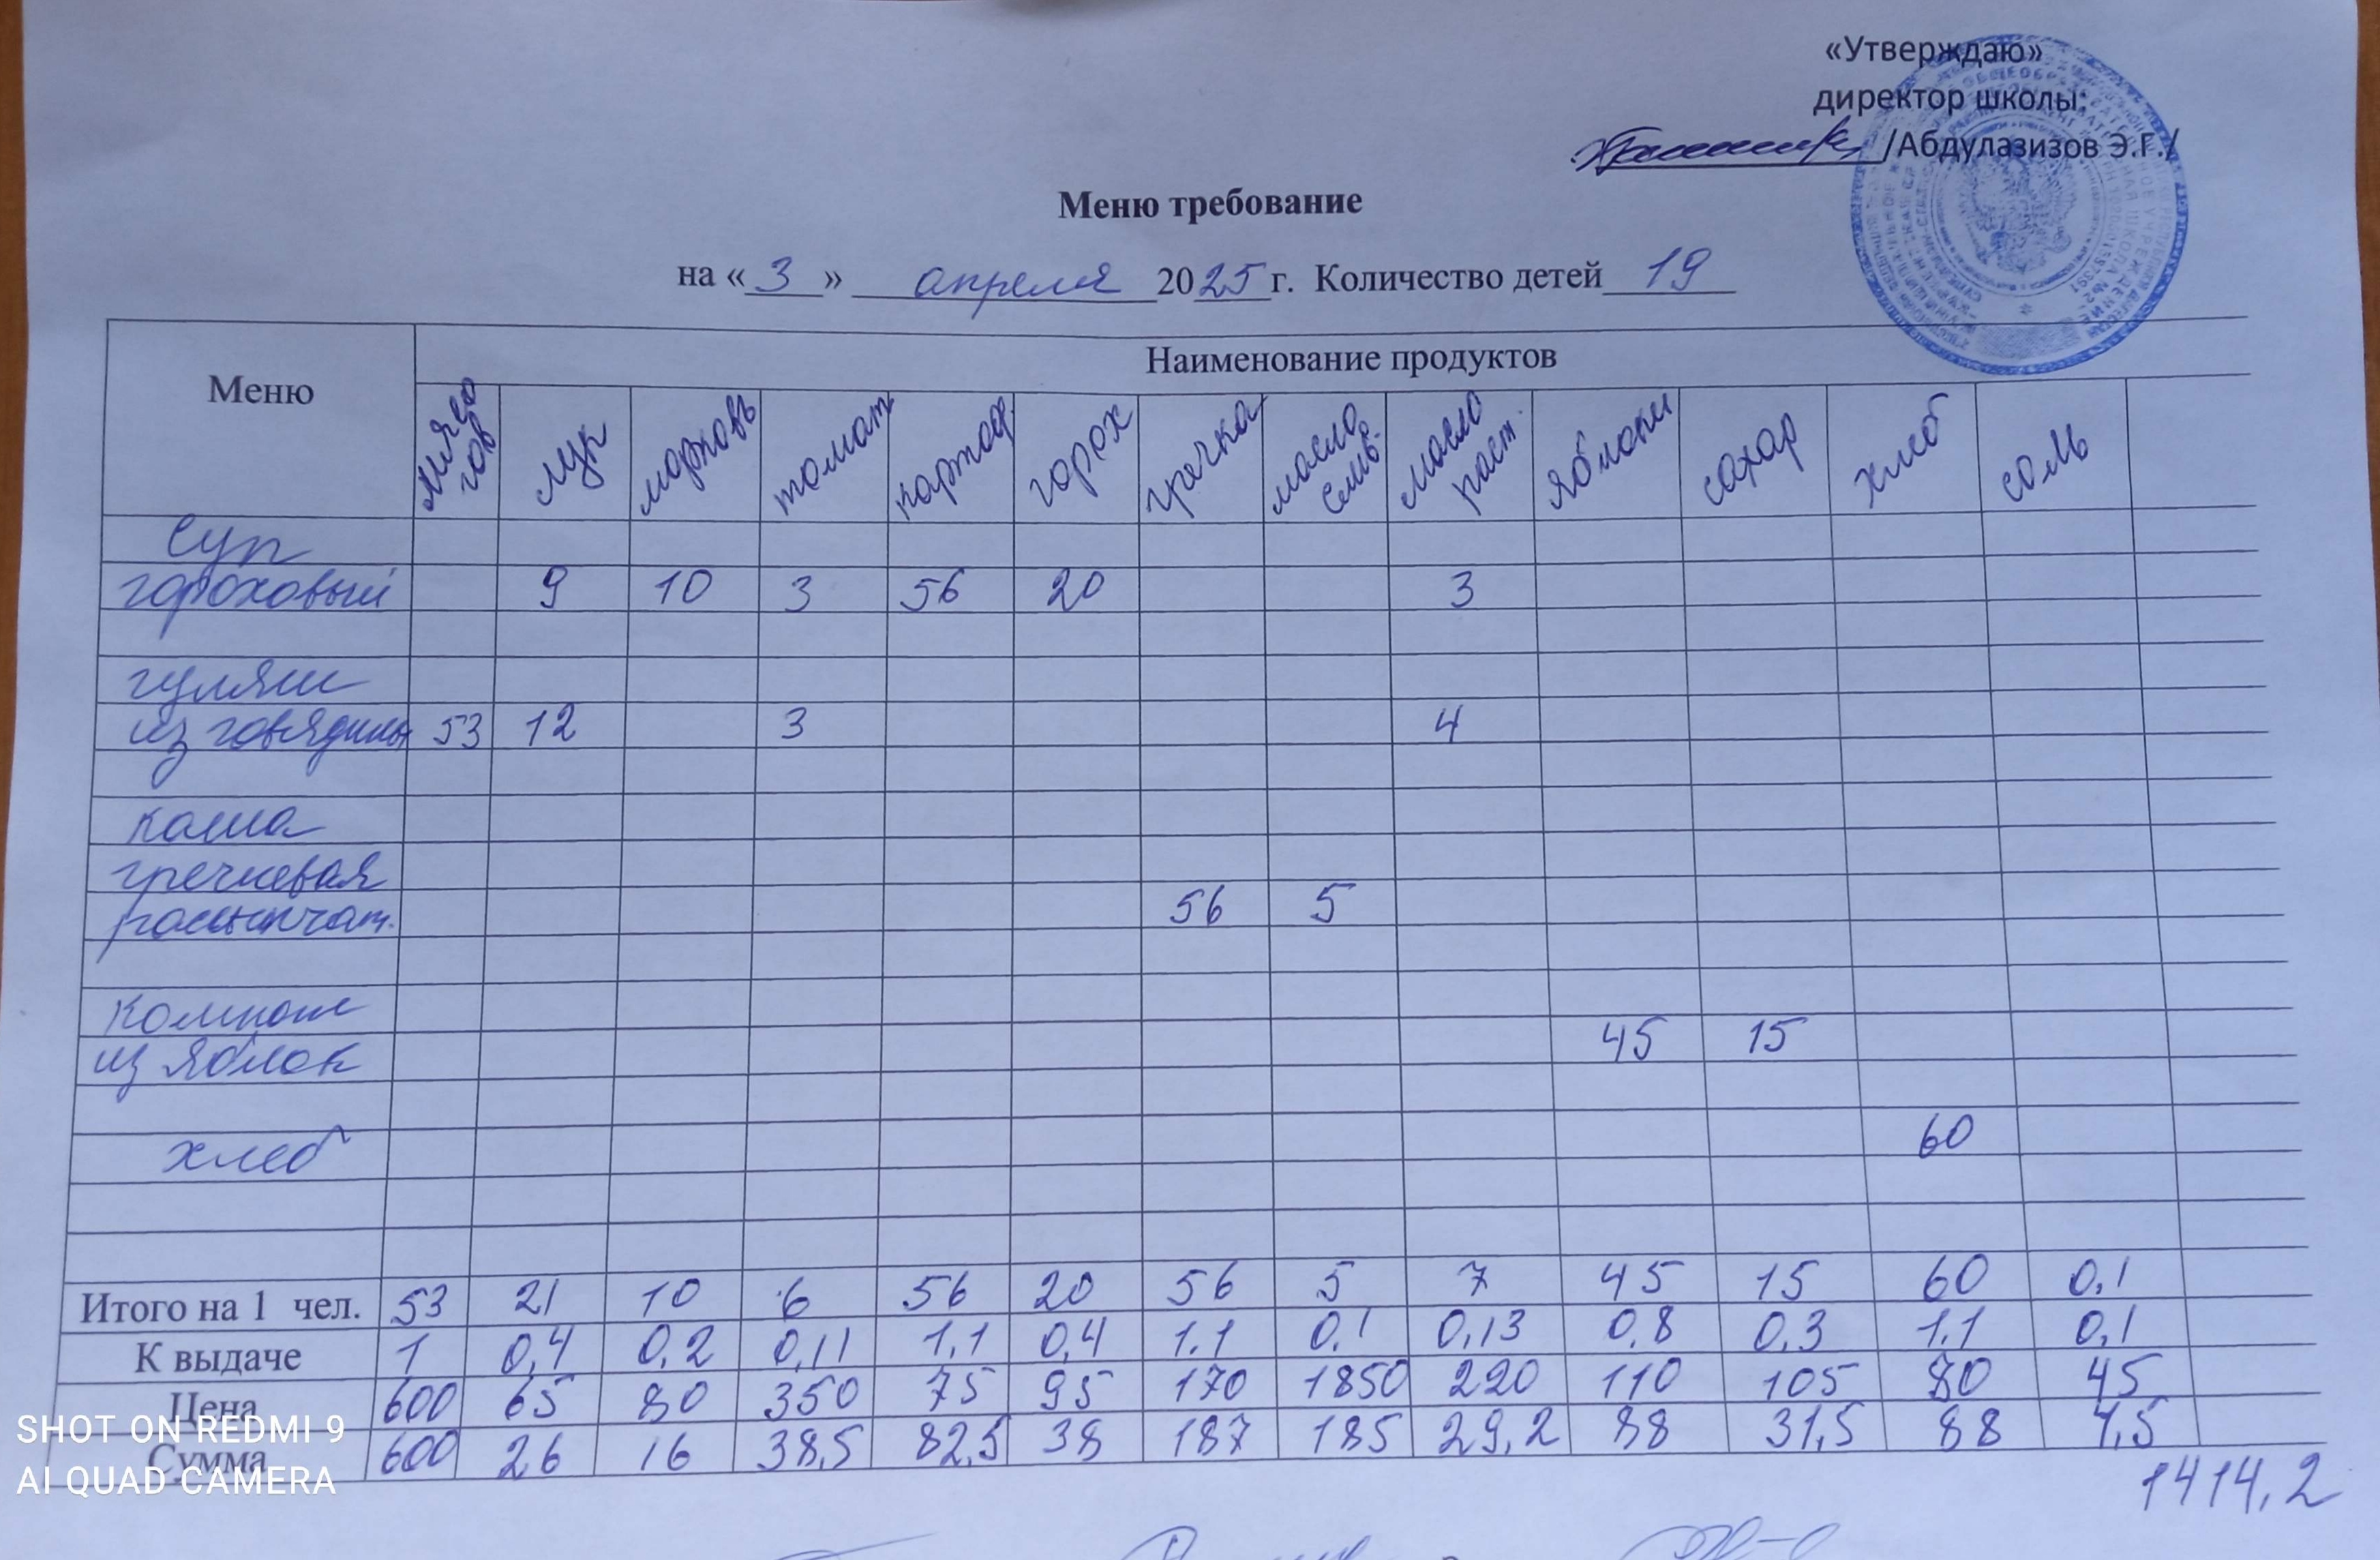 «Утверждаю»
директор школы:
/Абдулазизов Э.Г./
Меню требование
на «3» апреля 2025 г. Количество детей 19
Меню Наименование продуктов
мясо гов лук морковь томат картоф. горох гречка масло слив. масло раст. яблоки сахар хлеб соль
Суп
гороховый 9 10 3 56 20 3
гуляш
из говядины 53 12 3 4
каша
гречневая
рассыпчат. 56 5
Компот
из яблок 45 15
хлеб 60
Итого на 1 чел. 53 21 10 6 56 20 56 5 7 45 15 60 0,1
К выдаче 1 0,4 0,2 0,11 1,1 0,4 1.1 0,1 0,13 0,8 0,3 1,1 0,1
Цена 600 65 80 350 75 95 170 1850 220 110 105 80 45
Сумма 600 26 16 38,5 82,5 38 187 185 29,2 88 31,5 88 4,5
1414,2
SHOT ON REDMI 9
AI QUAD CAMERA